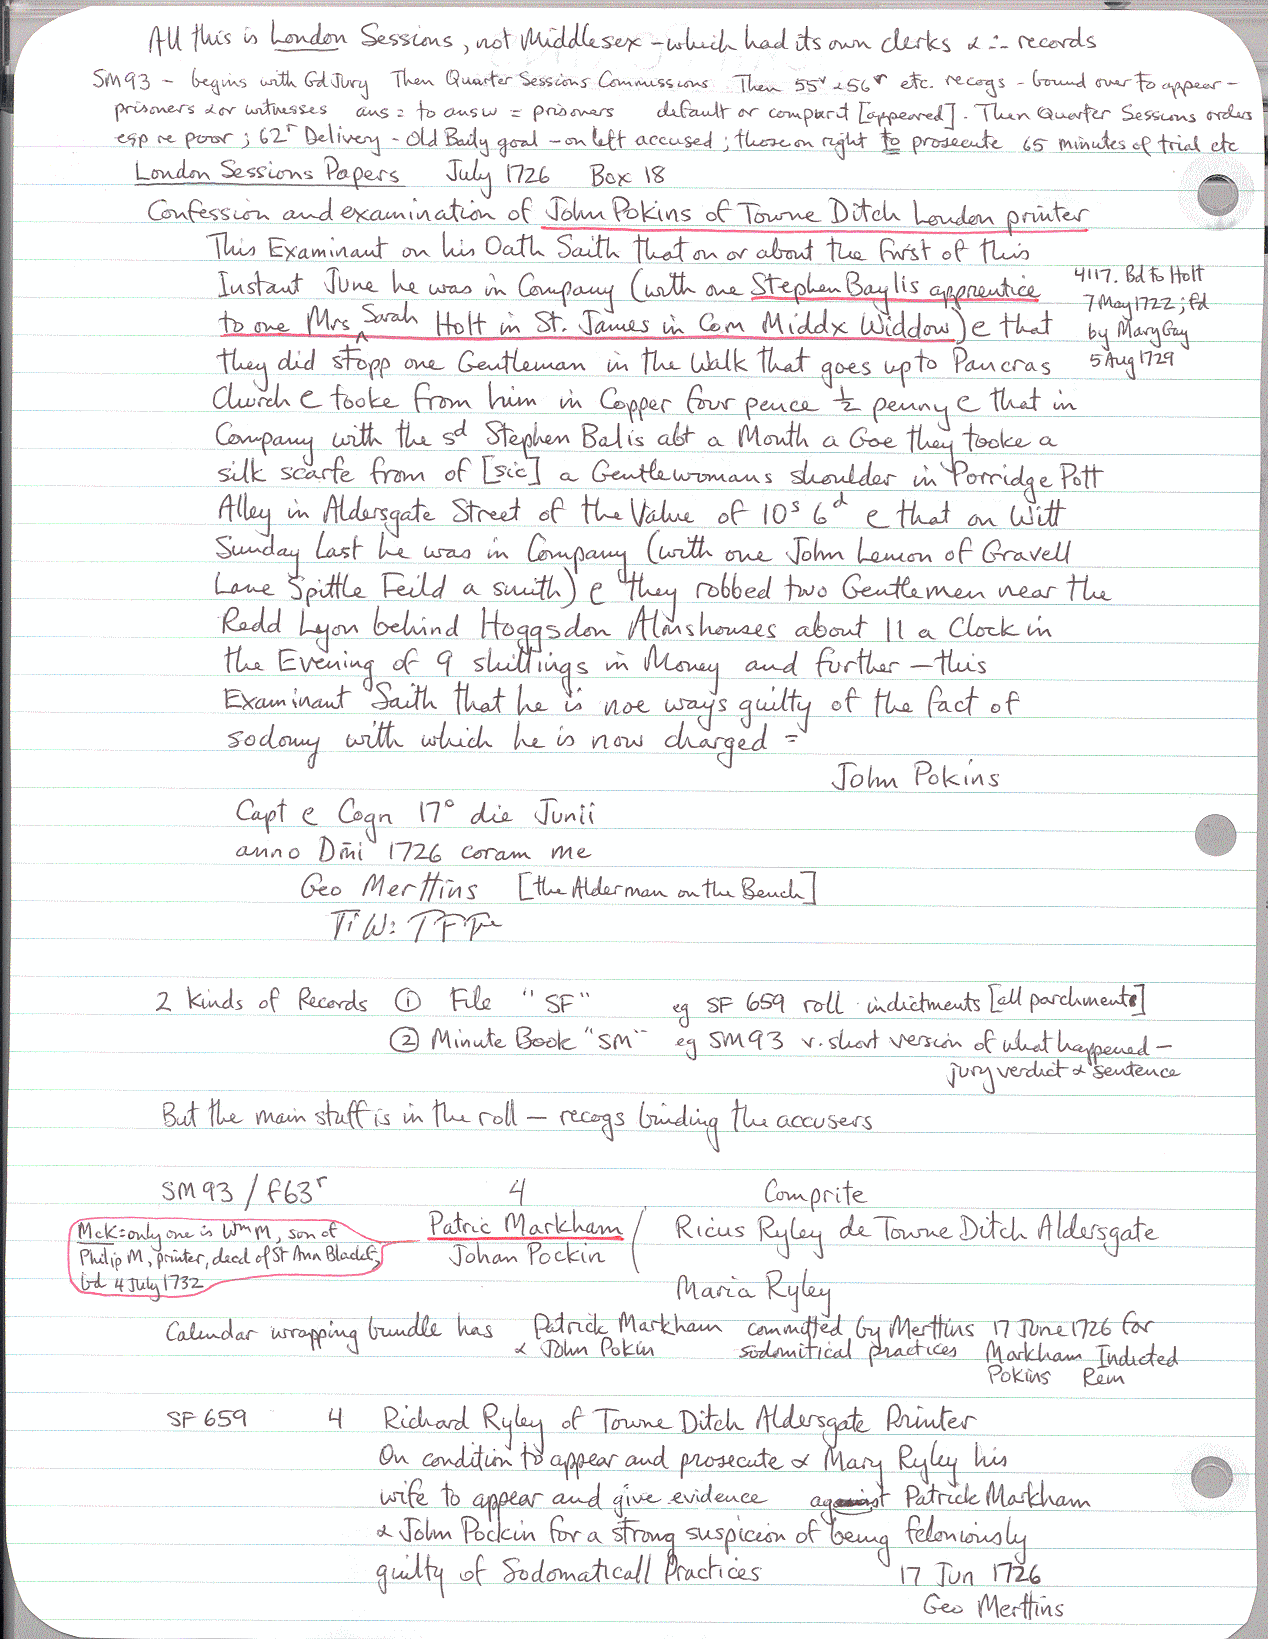 All this is London Sessions, not Middlesex – which had its own clerks & ∴ records
SM93 – begins with Gd Jury Then Quarter Sessions Commissions Then 55v & 56r etc. recogs – bound over to appear –
prisoners &/or witnesses ans = to answ = prisoners default or compart [appeared]. Then Quarter Sessions orders
esp re poor; 62r Delivery – Old Baily goal – on left accused; those on right to prosecute 65 minutes of trial etc
London Sessions Papers July 1726 Box 18
Confession and examination of John Pokins of Towne Ditch London printer
This Examinant on his Oath Saith that on or about the First of this
Instant June he was in Company (with one Stephen Baylis apprentice
to one Mrs Sarah Holt in St. James in Com Middx Widdow) e that
4117. Bd to Holt
7 May 1722; fd
by Mary Gay
5 Aug 1729
they did stopp one Gentleman in the Walk that goes up to Pancras
Church e tooke from him in Copper four pence ½ penny e that in
Company with the sd Stephen Balis abt a Month a Goe they tooke a
silk scarfe from of [sic] a Gentlewomans shoulder in Porridge Pott
Alley in Aldersgate Street of the Value of 10s 6d e that on Witt
Sunday Last he was in Company (with one John Lemon of Gravell
Lane Spittle Feild a smith) e they robbed two Gentlemen near the
Redd Lyon behind Hoggsdon Almshouses about 11 a Clock in
the Evening of 9 shillings in Money and further – this
Examinant Saith that he is noe ways guilty of the fact of
sodomy with which he is now charged =
John Pokins
Capt e Cogn 17° die Junii
anno Dm̄i 1726 coram me
Geo Merttins [the Alderman on the Bench]
2 Kinds of Records ① File "SF" eg SF 659 roll indictments [all parchments]
② Minute Book "SM" eg SM93 v. short version of what happened –
jury verdict & sentence
But the main stuff is in the roll – recogs binding the accusers
SM93 / f63r 4 Comprite
McK = only one is Wm M, son of
Philip M, printer, decd of St Ann Blackf,
bd 4 July 1732
Patric Markham / Ricus Ryley de Towne Ditch Aldersgate
Johan Pockin
Maria Ryley
Calendar wrapping bundle has Patrick Markham committed by Merttins 17 June 1726 for
& John Pokin sodomitical practices Markham Indicted
Pokins Rem
SF 659 4 Richard Ryley of Towne Ditch Aldersgate Printer
On condition to appear and prosecute & Mary Ryley his
wife to appear and give evidence against Patrick Markham
& John Pockin for a strong suspicion of being feloniously
guilty of Sodomaticall Practices 17 Jun 1726
Geo Merttins